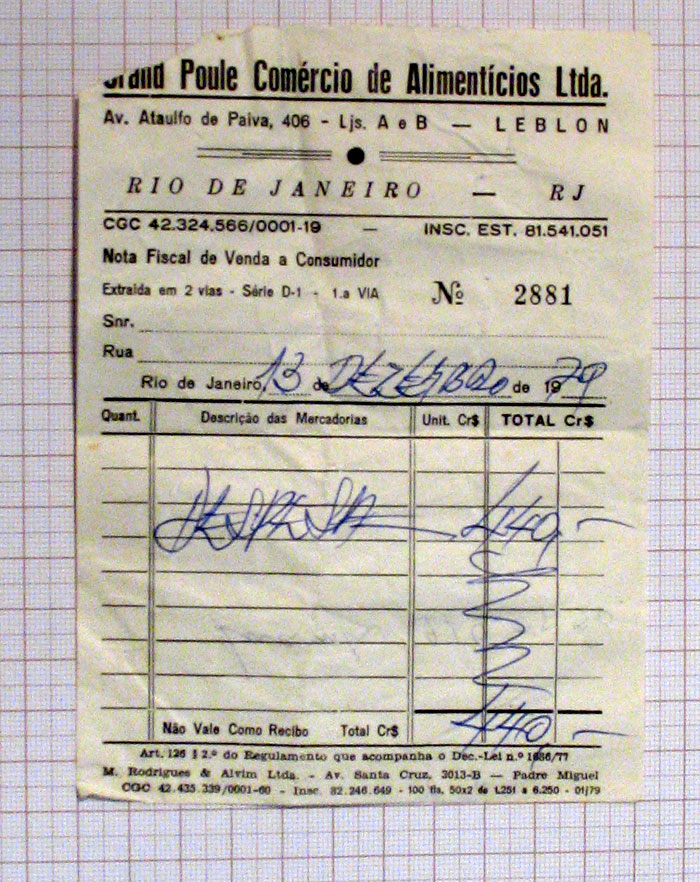 Grand Poule Comércio de Alimentícios Ltda.
Av. Ataulfo de Paiva, 406 - Ljs. A e B — LEBLON
RIO DE JANEIRO — RJ
CGC 42.324.566/0001-19 — INSC. EST. 81.541.051
Nota Fiscal de Venda a Consumidor
Extraída em 2 vias - Série D-1 - 1.a VIA Nº 2881
Snr.
Rua
Rio de Janeiro, 13 de DEZEMBRO de 1979
Quant. Descrição das Mercadorias Unit. Cr$ TOTAL Cr$
DESPESA 440,-
440,-
Não Vale Como Recibo Total Cr$
Art. 126 § 2.º do Regulamento que acompanha o Dec.-Lei n.º 1686/77
M. Rodrigues & Alvim Ltda. - Av. Santa Cruz, 3013-B — Padre Miguel
CGC 42.435.339/0001-60 - Insc. 82.246.649 - 100 tls. 50x2 de 1.251 a 6.250 - 01/79